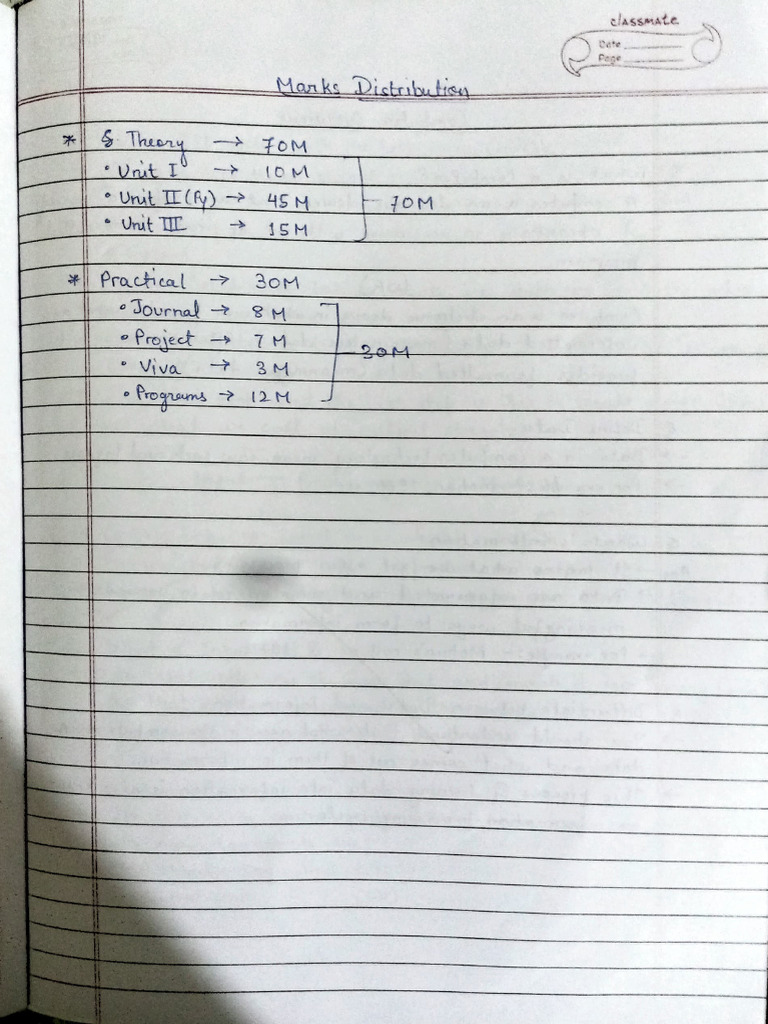 classmate
Date
Page
Marks Distribution
* § Theory → 70M
• Unit I → 10M
• Unit II (Py) → 45M
• Unit III → 15M
70M
* Practical → 30M
• Journal → 8M
• Project → 7M
• Viva → 3M
• Programs → 12M
30M